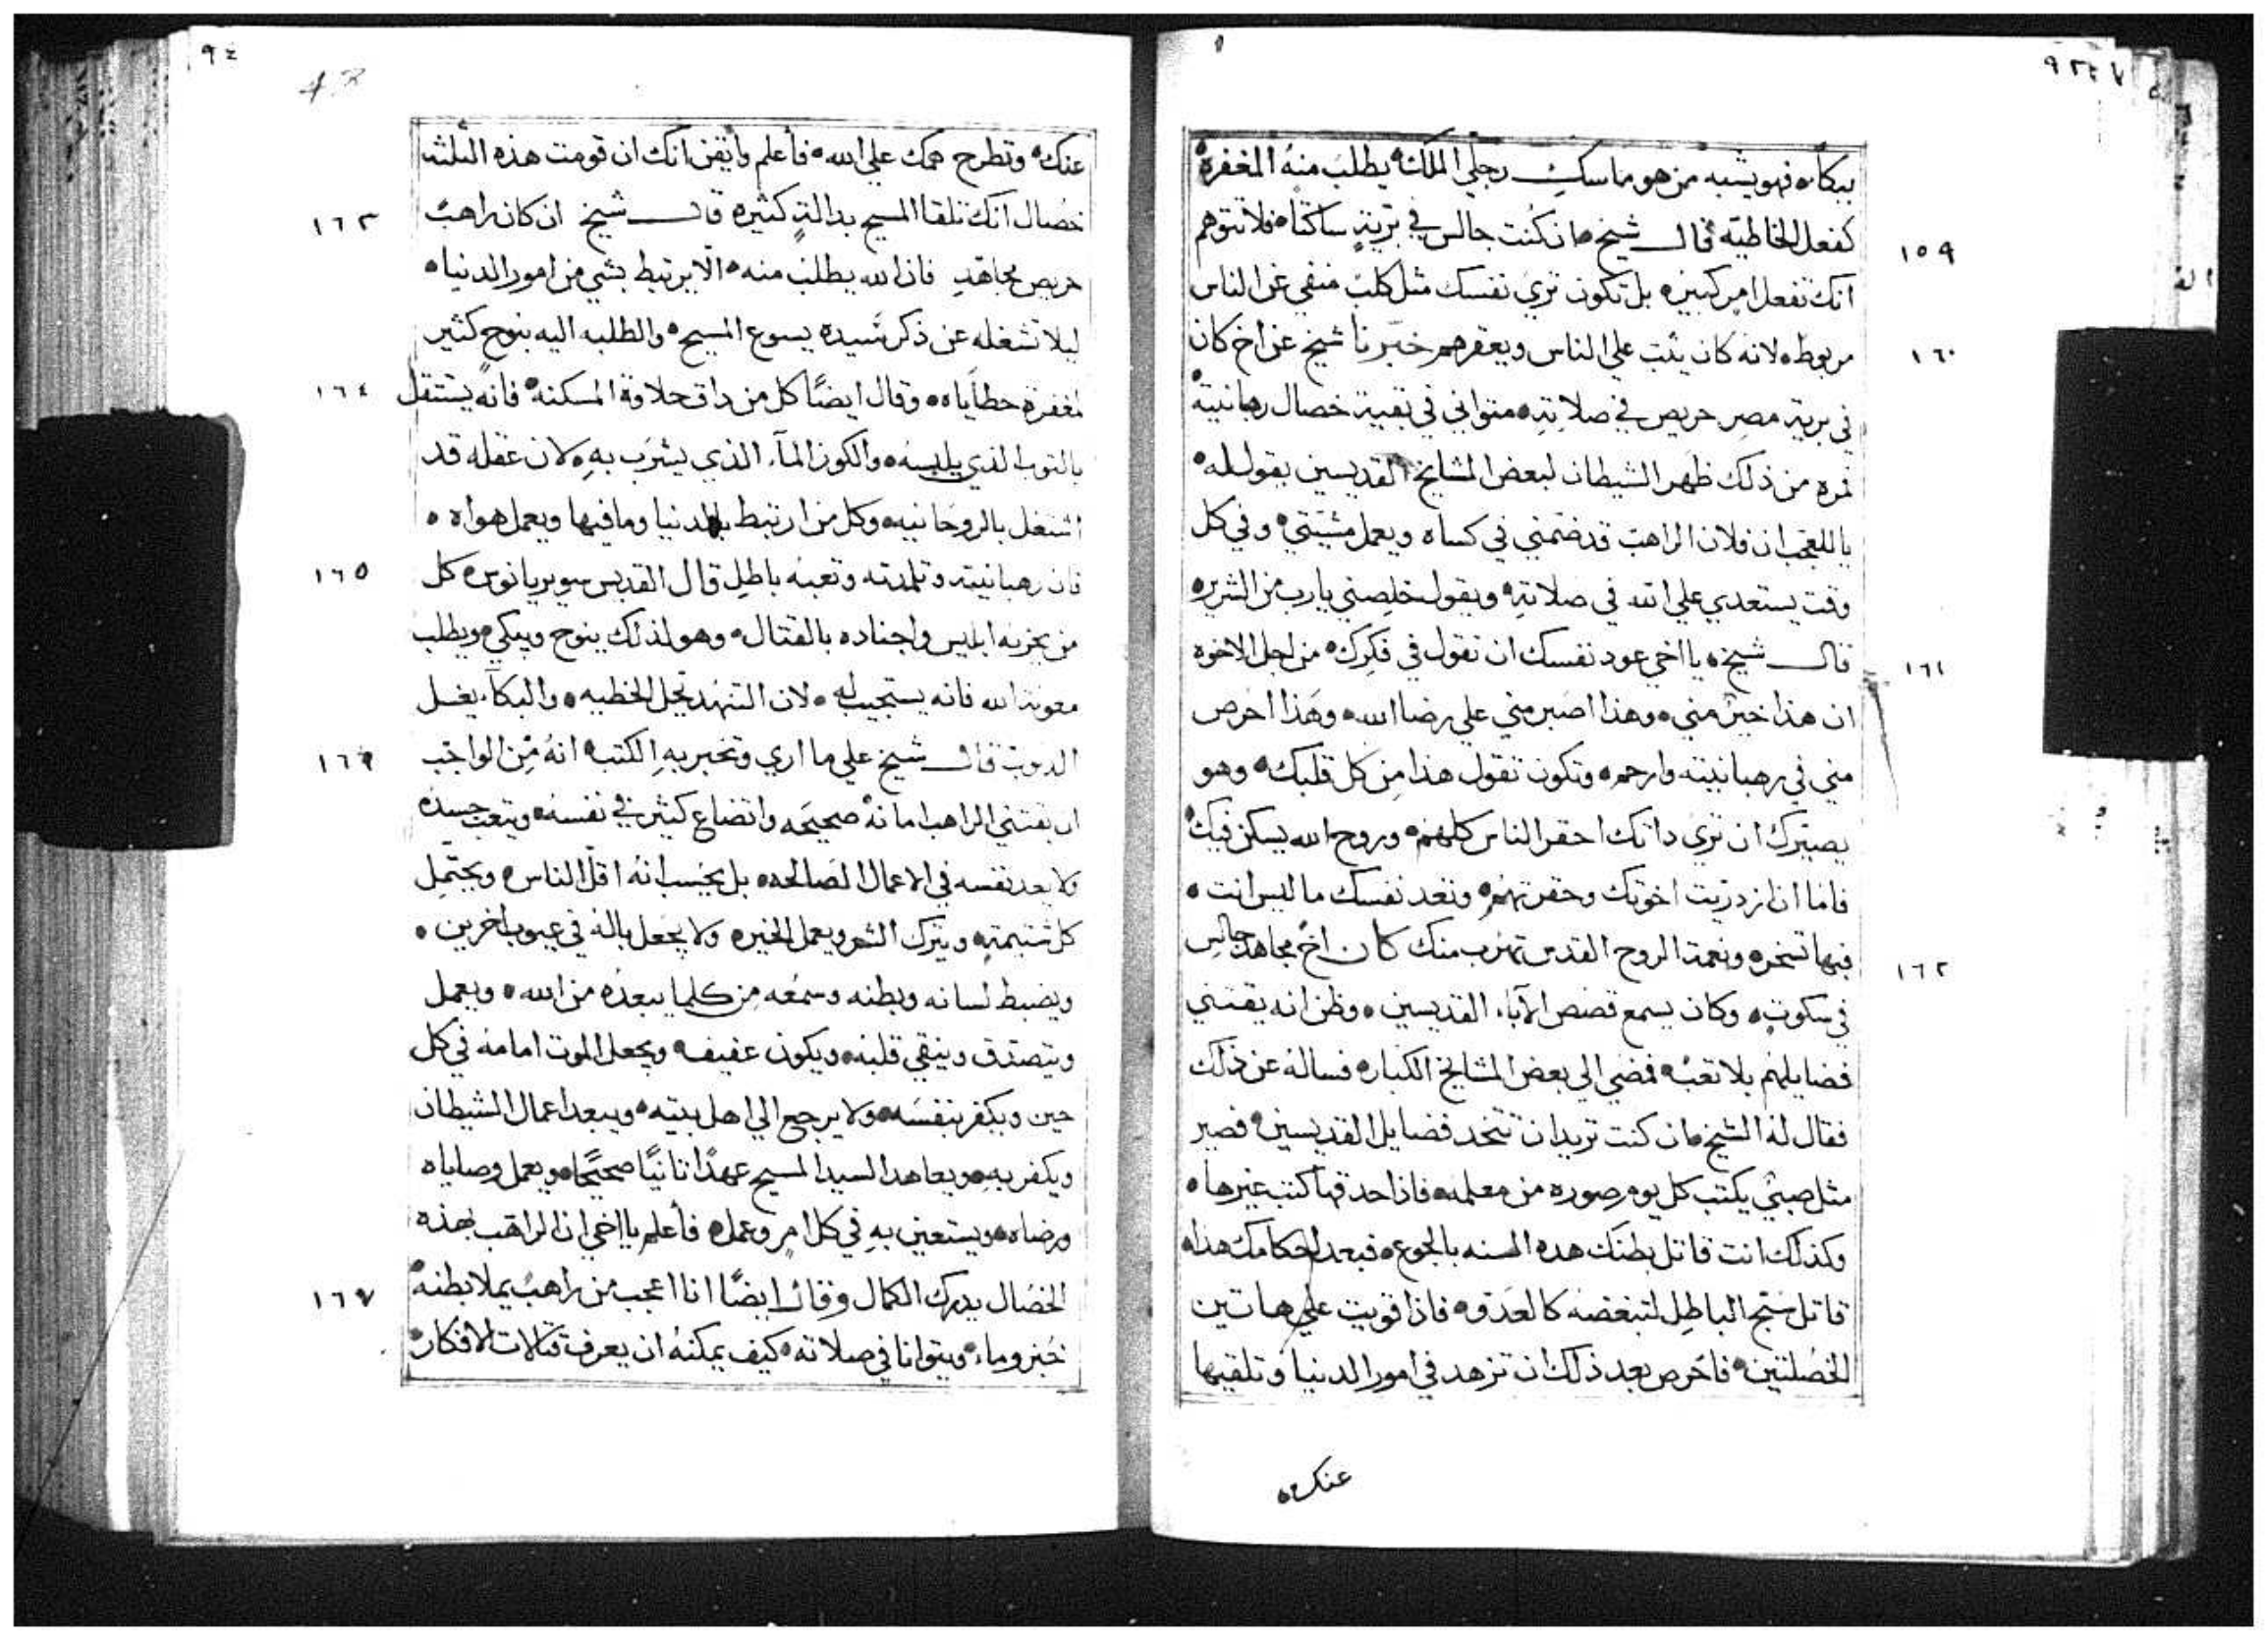 ببكاء فهو يشبه من هو ماسك رجلي الملك يطلب منه المغفرة
كفعل الخاطية قال شيخ ان كنت جالس في برية ساكتا فلا تتوهم
١٥٩
انك تفعل امر كبير بل تكون تري نفسك مثل كلب منفي عن الناس
مربوط لانه كان يثب علي الناس ويعقرهم خبرنا شيخ عن اخ كان
١٦٠
في برية مصر حريص في صلاته متواني في بقية خصال رهبانيته
فمره من ذلك ظهر الشيطان لبعض المشايخ القديسين يقول له
يا للعجب ان فلان الراهب قد ضمني في كساه ويعمل مشيتي وفي كل
وقت يستعدي علي الله في صلاته ويقول خلصني يارب من الشرير
قال شيخ يا اخي عود نفسك ان تقول في فكرك من اجل الاخوه
١٦١
ان هذا خير مني وهذا اصبر مني علي رضا الله وهذا احرص
مني في رهبانيته وارحم وتكون تقول هذا من كل قلبك وهو
يصيرك ان تري داتك احقر الناس كلهم وروح الله يسكن فيك
فاما ان ازدريت اخوتك وحقرتهم وتعد نفسك ما ليس انت
فيها تسخر ونعمة الروح القدس تهرب منك كان اخ مجاهد جالس
١٦٢
في سكوت وكان يسمع قصص الآباء القديسين وظن انه يقتني
فضايلهم بلا تعب فمضي الي بعض المشايخ الكبار فساله عن ذلك
فقال له الشيخ ان كنت تريد ان تتخد فضايل القديسين فصير
مثل صبي يكتب كل يوم صوره من معلمه فاذا حدقها كتب غيرها
وكذلك انت قاتل بطنك هده السنه بالجوع فبعد احكامك هذا
قاتل سبح الباطل لتبغضه كالعدو فاذا قويت علي هاتين
الخصلتين فاحرص بعد ذلك ان تزهد في امور الدنيا وتلقيها
عنك
٩٤
عنك وتطرح همك علي الله فأعلم وأيقن انك ان قومت هذه الثلثة
خصال انك تلقا المسيح بدالة كثيره قال شيخ ان كان راهب
١٦٣
حريص مجاهد فان الله يطلب منه الا يرتبط بشي من امور الدنيا
ليلا تشغله عن ذكر سيده يسوع المسيح والطلبه اليه بنوح كثير
لمغفرة خطاياه وقال ايضا كل من داق حلاوة المسكنة فانه يستتقل
١٦٤
بالتوب الذي يلبسه والكوز المآء الذي يشرب به لان عقله قد
اشتغل بالروحانيه وكل من ارتبط بالدنيا وما فيها ويعمل هواه
فان رهبانيته وتلمدته وتعبه باطل قال القديس سويريانوس كل
١٦٥
من يحزنه ابليس واجناده بالقتال وهو لذلك ينوح ويبكي ويطلب
معونة الله فانه يستجيب له لان التنهد تحل الخطيه والبكآء يغسل
الدنوب قال شيخ علي ما اري وتخبر به الكتب انه من الواجب
١٦٦
ان يقتني الراهب امانة صحيحه واتضاع كثير في نفسه ويتعب جسده
ولا يعد نفسه في الاعمال الصالحه بل يحسب انه اقل الناس ويحتمل
كل شتيمة ويترك الشر ويعمل الخير ولا يجعل باله في عيوب اخرين
ويضبط لسانه وبطنه وسمعه من كلما يبعده من الله ويعمل
ويتصدق وينقي قلبه ويكون عفيف ويجعل الموت امامه في كل
حين ويكفر بنفسه ولا يرجع الي اهل بيته ويبعد اعمال الشيطان
ويكفر به ويعاهد السيد المسيح عهدًا تانيًا صحيحًا ويعمل وصاياه
ورضاه ويستعين به في كل امر وعمل فأعلم يا اخي ان الراهب بهذه
الخصال يدرك الكمال وقال ايضًا انا اعجب من راهب يملا بطنه
١٦٧
خبز وماء ويتوانا في صلاته كيف يمكنه ان يعرف قتالات الافكار